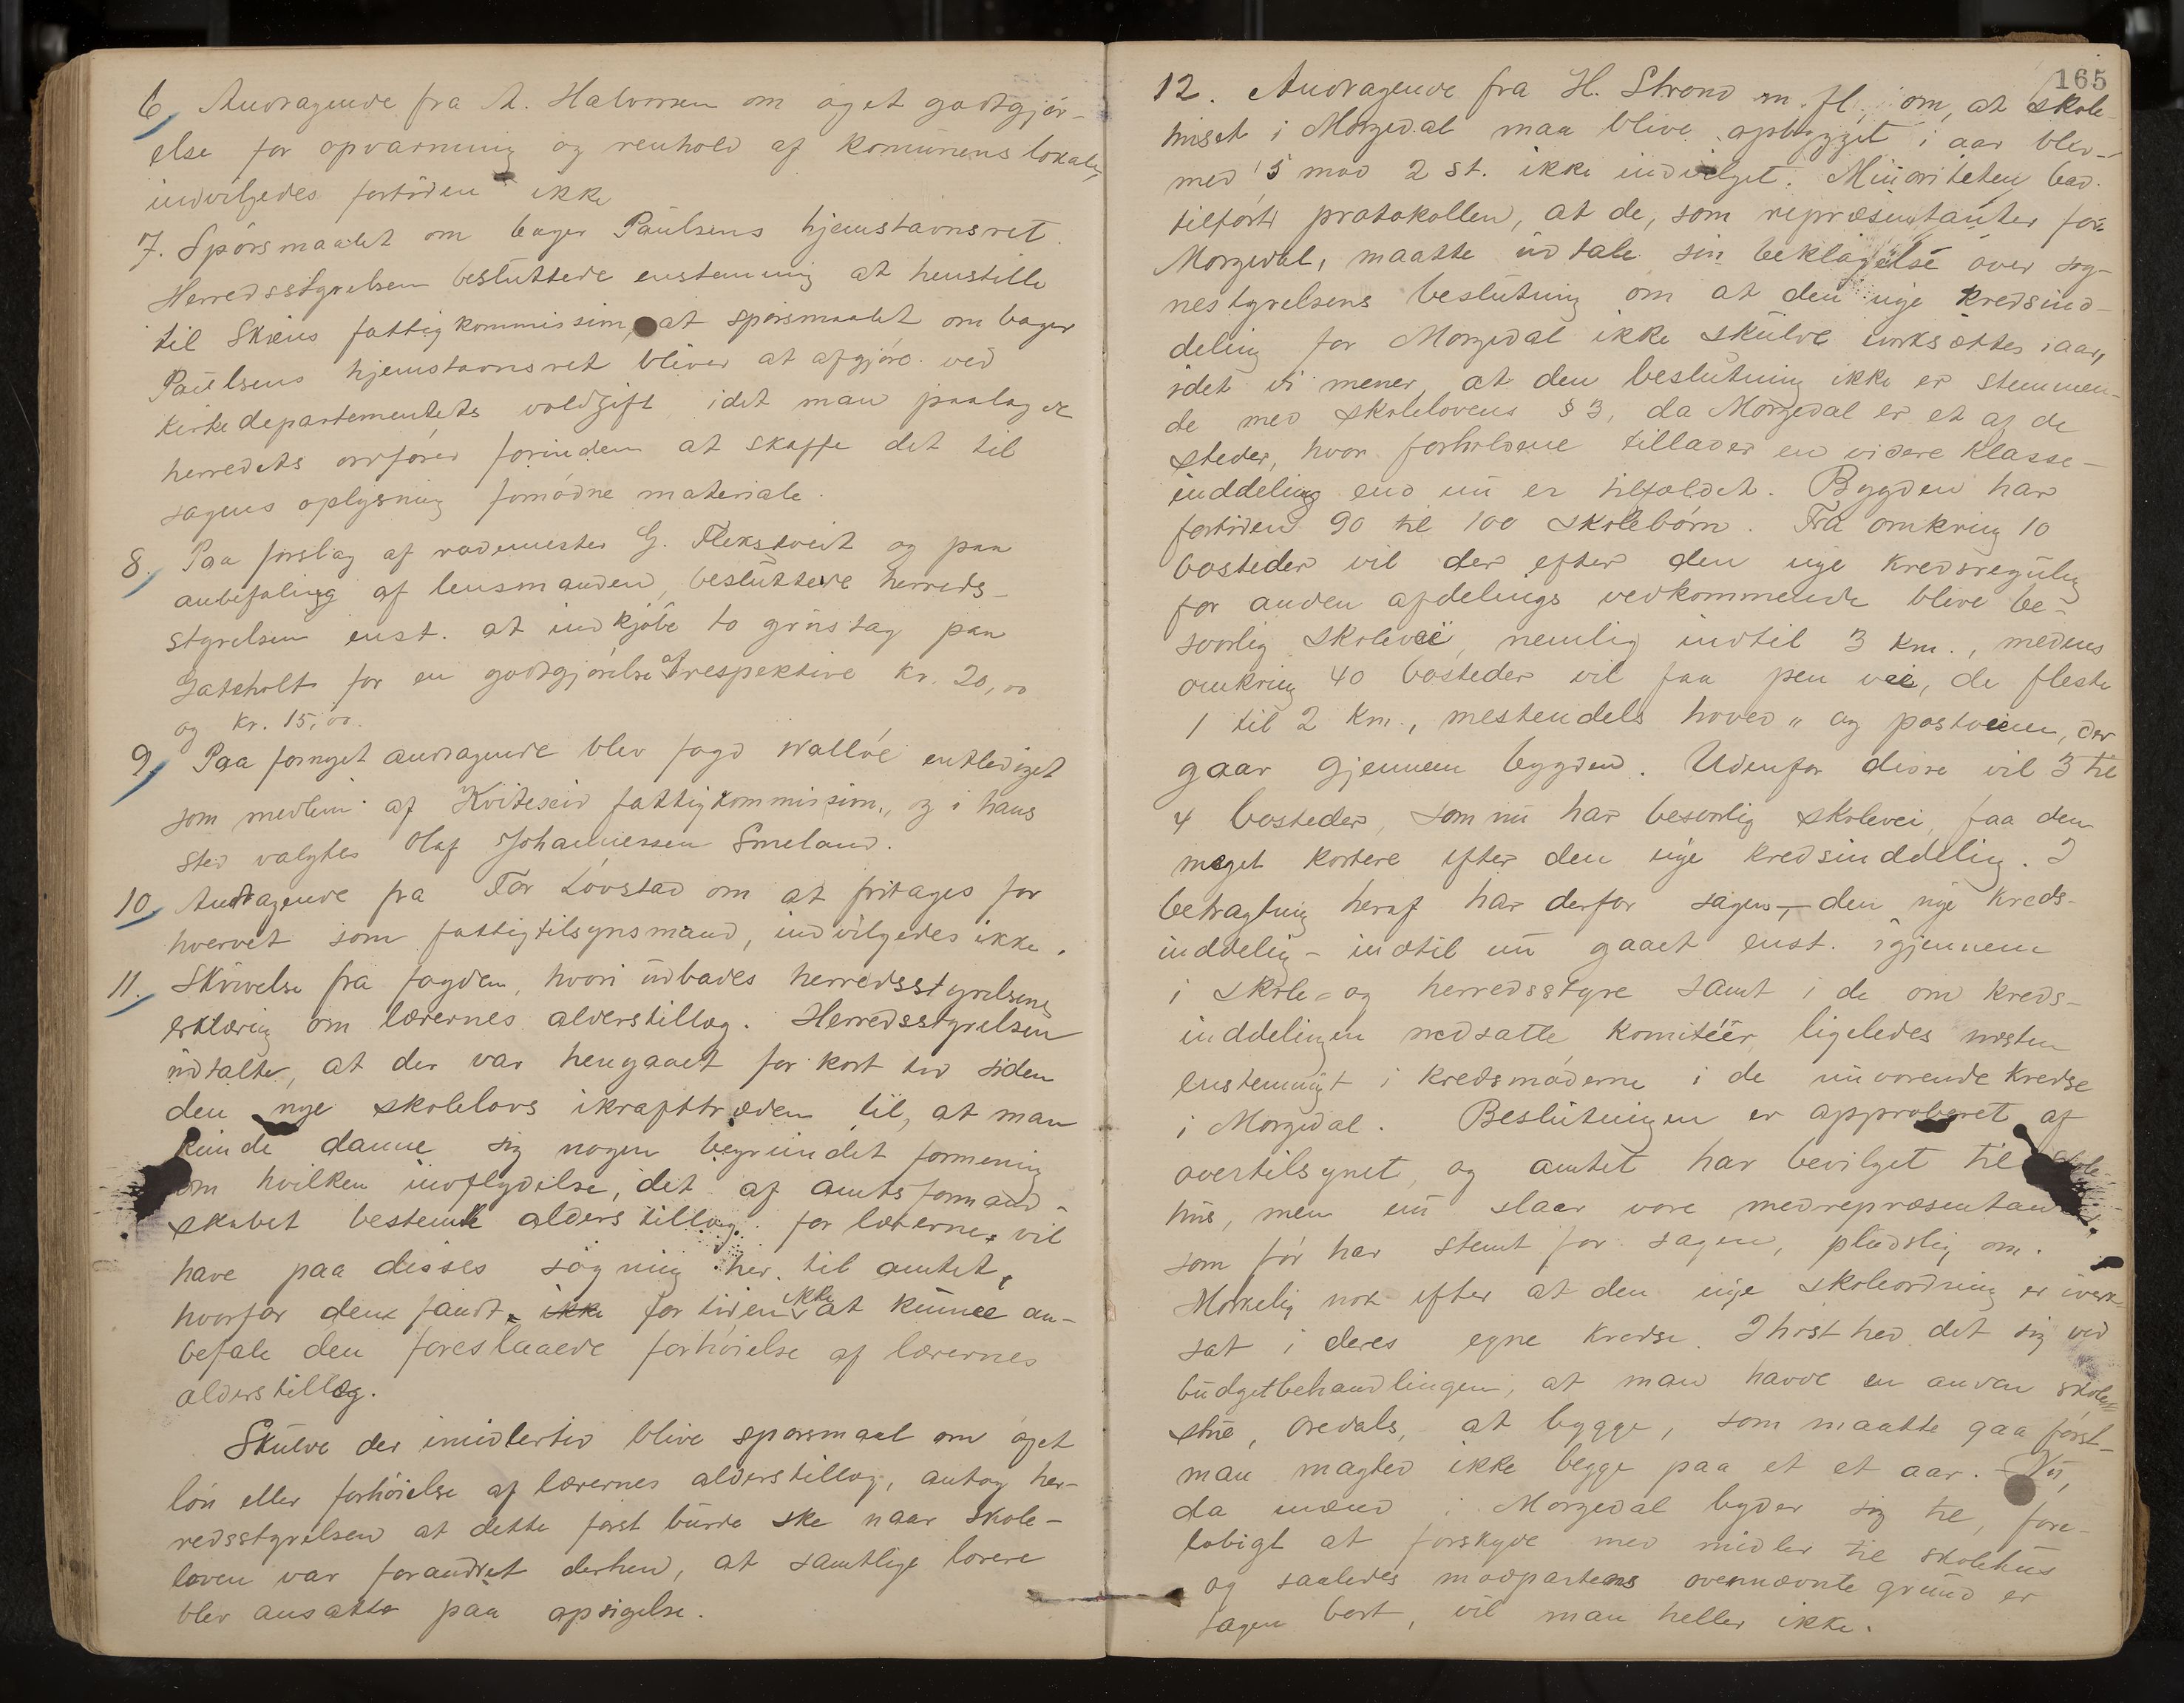 6, Andragende fra A. Halvorsen om øget godtgjør-
else for opvarming og renhold af komunens lokale,
indvilgedes fortiden ikke
7. Spørsmaalet om bager Paulsens hjemstavnsret.
Herredsstyrelsen besluttede enstemmig at henstille
til Skiens fattigkommission, at spørsmaalet om bager
Paulsens hjemstavnsret bliver at afgjøre ved
kirkedepartementets voldgift, idet man paalagde
herredets ordfører forinden at skaffe det til
sagens oplysning fornødne materiale.
8. Paa forslag af rodemester G. Flekstveit og paa
anbefaling af lensmanden, besluttede herreds-
styrelsen enst. at indkjøbe to grustag paa
Gateholt for en godtgjørelse af respektive kr. 20,00
og kr. 15,00.
9, Paa fornyet andragende blev fogd Walløe entlediget
som medlem af Kviteseid fattigkommission, og i hans
sted valgtes Olaf Johannessen Smeland.
10, Andragende fra Tor Løvstad om at fritages for
hvervet som fattigtilsynsmand, indvilgedes ikke.
11. Skrivelse fra fogden, hvori udbades herredsstyrelsens
erklæring om lærernes alderstillæg. Herredsstyrelsen
udtalte, at der var hengaaet for kort tid siden
den nye skolelovs ikrafttræden til, at man
kunde danne sig nogen begrundet formening
om hvilken indflydelse, det af amtsformand-
skabet bestemte alderstillæg for lærerne, vil
have paa disses søgning her til amtet,
hvorfor den fandt ikke for tiden ikke at kunne an-
befale den foreslaaede forhøielse af lærernes
alderstillæg.
Skulde der imidlertid blive spørsmaal om øget
løn eller forhøielse af lærernes alderstillæg, antog her-
redsstyrelsen at dette først burde ske naar skole-
loven var forandret derhen, at samtlige lærere
blev ansatte paa opsigelse.
165
12. Andragende fra H. Strond m. fl, om, at skole-
huset i Morgedal maa blive opbygget i aar blev
med 15 mod 2 st. ikke indvilget. Minoriteten bad
tilført protokollen, at de, som repræsentanter for
Morgedal, maatte udtale sin beklagelse over sog-
nestyrelsens beslutning om at den nye kredsind-
deling for Morgedal ikke skulde iverksættes iaar,
idet vi mener, at den beslutning ikke er stemmen-
de med skolelovens § 3, da Morgedal er et af de
steder, hvor forholdene tillader en videre klasse-
inddeling end nu er tilfældet. Bygden har
fortiden 90 til 100 skolebørn. Fra omkring 10
bosteder vil der efter den nye kredsregulg
for anden afdelings vedkommende blive be-
sværlig skolevei, nemlig indtil 3 km., medens
omkring 40 bosteder vil faa pen vei, de fleste
1 til 2 km., mestendels hoved " og postveien, der
gaar gjennem bygden. Udenfor disse vil 3 til
4 bosteder, som nu har besværlig skolevei, faa den
meget kortere efter den nye kredsinddeling. I
betragtning heraf har derfor sagen – den nye kreds-
inddeling – indtil nu gaaet enst. igjennem
i skole- og herredsstyre samt i de om kreds-
inddelingen nedsatte komitéer, ligeledes næsten
enstemmigt i kredsmøderne i de nuværende kredse
i Morgedal. Beslutningen er approberet af
overtilsynet, og amtet har bevilget til skole-
hus, men nu slaar vore medrepræsentanter,
som før har stemt for sagen, pludslig om.
Mærkelig nok efter at den nye skoleordning er iverk-
sat i deres egne kredse. Ihøst hed det sig ved
budgetbehandlingen, at man havde en anden skole-
stue, Øredals, at bygge, som maatte gaa først-
man magted ikke begge paa et et aar. – Nu,
da mænd i Morgedal byder sig til, fore-
løbigt at forskyde med midler til skolehus
og saaledes modpartens ovennævnte grund er
tagen bort, vil man heller ikke.